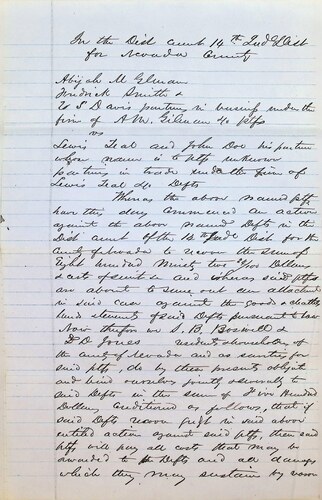 In the Dist Court 14th Jud Dist
for Nevada County
Abijah M Gilman
Fredrick Smith &
U S Davis partners in business under the
firm of A. M. Gilman & Co Plffs
vs
Lewis Teal and John Doe his partner
whose name is to Plffs unknown
partners in trade under the firm of
Lewis Teal & Co. Defts
Whereas the above named Plffs
have this day commenced an action
against the above named Defts in the
Dist Court of the 14th Jud Dist for the
County of Nevada to recover the sum of
Eight hundred Ninety two /100 Dollars
& costs of suit and whereas said Plffs
are about to sue out an attachment
in said case against the goods & chattels
lands & tenements of said Defts pursuant to law
Now therefore we S. B. Boswell &
D Jones residents & householders of
the County of Nevada and as sureties for
said Plffs, do by these presents obligate
and bind ourselves jointly & severally to
said Defts in the sum of Five Hundred
Dollars, Conditioned as follows, that if
said Defts recover judgt in said above
entitled action against said Plffs, then said
Plffs will pay all costs that may be
awarded to Defts and all damages
which they may sustain by reason